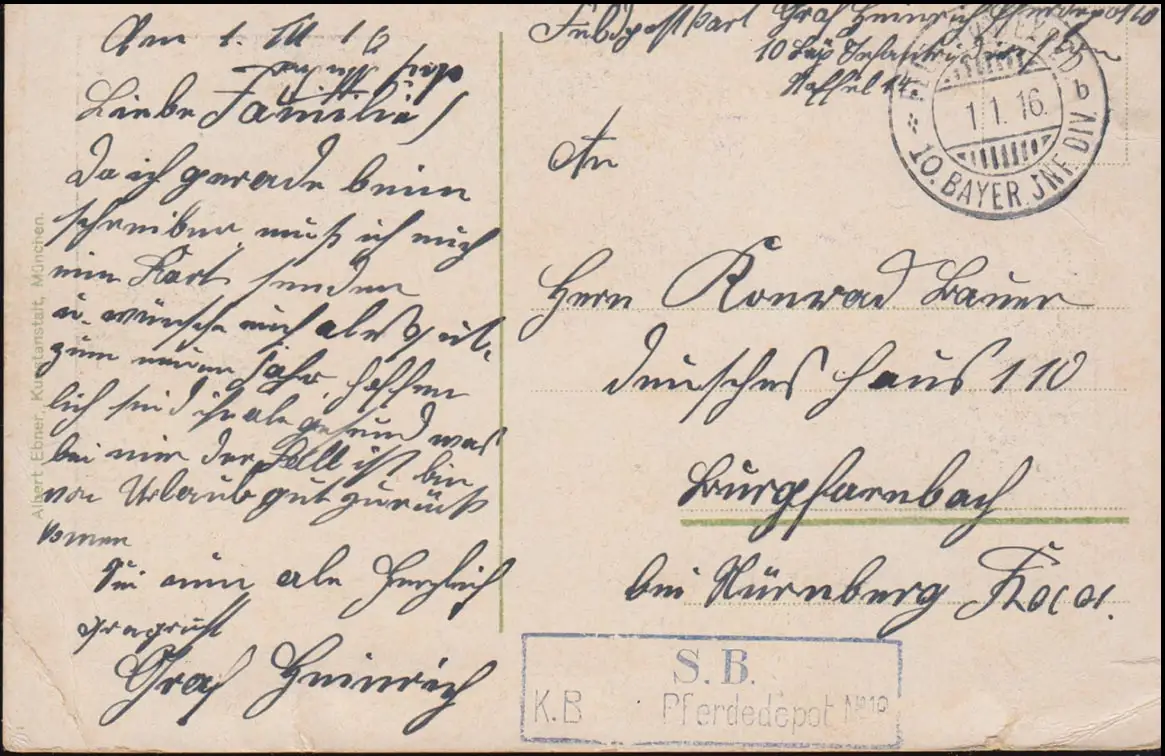 Den 1. III 16
Liebe Familie
Da ich gerade beim
schreiben muß ich euch
eine Kart senden
u. wünsche euch ales gute
zum neuen Jahr, hoffen
lich seid ihr ale gesund was
bei mir der Fall ist bin
von Urlaub gut zurück
komen
Sei nun ale Herzlich
gegrüßt
Graf Heinrich
Feldpostkart Graf Heinrich Pferdepot 10
10 Bay Infantrie
Staffel 14.
10. BAYER. INF. DIV.
b
1.1.16.
An
Herrn Konrad Bauer
deusches Haus 110
Burgfarnbach
bei Nürnberg
S.B.
K.B Pferdedepot No 10
Albert Ebner, Kunstanstalt, München.